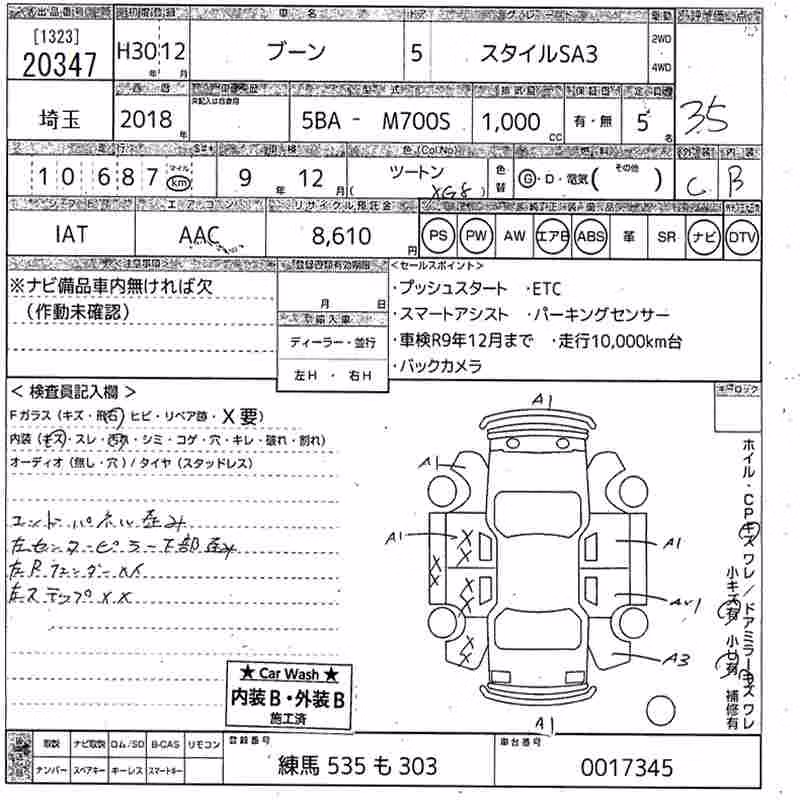 出品番号 初度登録 車名 ドア グレード 駆動 評価点
[1323]
20347
H30 12
年 月
ブーン
5
スタイルSA3
2WD
4WD
3.5
西暦 車歴 型式 排気量 定員
埼玉
2018年
5BA - M700S
1,000 cc
有・無
5名
走行 車検 色(Col.No) 燃料 その他 外装 内装
10687 マイル km
9年 12月
ツートン
(XG8)
色替
G・D・電気( )
C
B
シフト エアコン リサイクル預託金
IAT
AAC
8,610円
PS PW AW エアB ABS 革 SR ナビ DTV
注意事項
※ナビ備品車内無ければ欠
(作動未確認)
登録書類有効期限
月 日
輸入車
ディーラー・並行
左H ・ 右H
<セールスポイント>
・プッシュスタート ・ETC
・スマートアシスト ・パーキングセンサー
・車検R9年12月まで ・走行10,000km台
・バックカメラ
キーロック
< 検査員記入欄 >
Fガラス(キズ・飛石)ヒビ・リペア跡・X要)
内装(キズ・スレ・汚れ・シミ・コゲ・穴・キレ・破れ・割れ)
オーディオ(無し・穴)/タイヤ(スタッドレス)
エンドパネル歪み
左センターピラー下部歪み
左Rフェンダー XX
左ステップ XX
A1
A1
A1 XX XX A1
XX
XX A3
A1
ホイル・CPキズ ワレ/ドアミラーキズ ワレ
小キズ有 小凹有 補修有
★ Car Wash ★
内装B・外装B
施工済
取説 ナビ取説 ロム/SD B-CAS リモコン
ナンバー スペアキー キーレス スマートキー
登録番号
練馬 535 も 303
車台番号
0017345